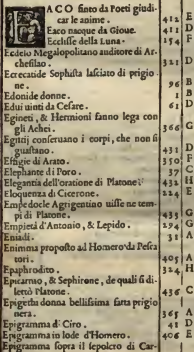 EACO finto da Poeti giudi-
car le anime. 412 E
Eaco nacque da Gioue. 411 D
Ecclisse della Luna. 154 F
Ecdeio Megalopolitano auditore di Ar-
chesilao. 321 D
Ecrecatide Sophista lasciato di prigio
ne. 96 B
Edonide donne. 1 B
Edui uinti da Cesare. 61 E
Egineti, & Hermioni fanno lega con
gli Achei. 366 G
Egittij conseruano i corpi, che non si
guastano. 431 D
Effigie di Arato. 350 F
Elephante di Poro. 37 C
Elegantia dell'oratione di Platone. 432 H
Eloquenza di Cicerone. 224 E
Empedocle Agrigentino uisse ne tem
pi di Platone. 435 G
Empietà d'Antonio, & Lepido. 294 G
Eniadi. 31 A
Enimma proposto ad Homero da Pesca
tori. 405 A
Epaphrodito. 324 H
Epicarmo, & Sephirone, de quali si di-
lettò Platone. 436 C
Epigetha donna bellissima fatta prigio
nera. 365 A
Epigramma di Ciro. 41 D
Epigramma in lode d'Homero. 406 E
Epigramma sopra il sepolcro di Car-